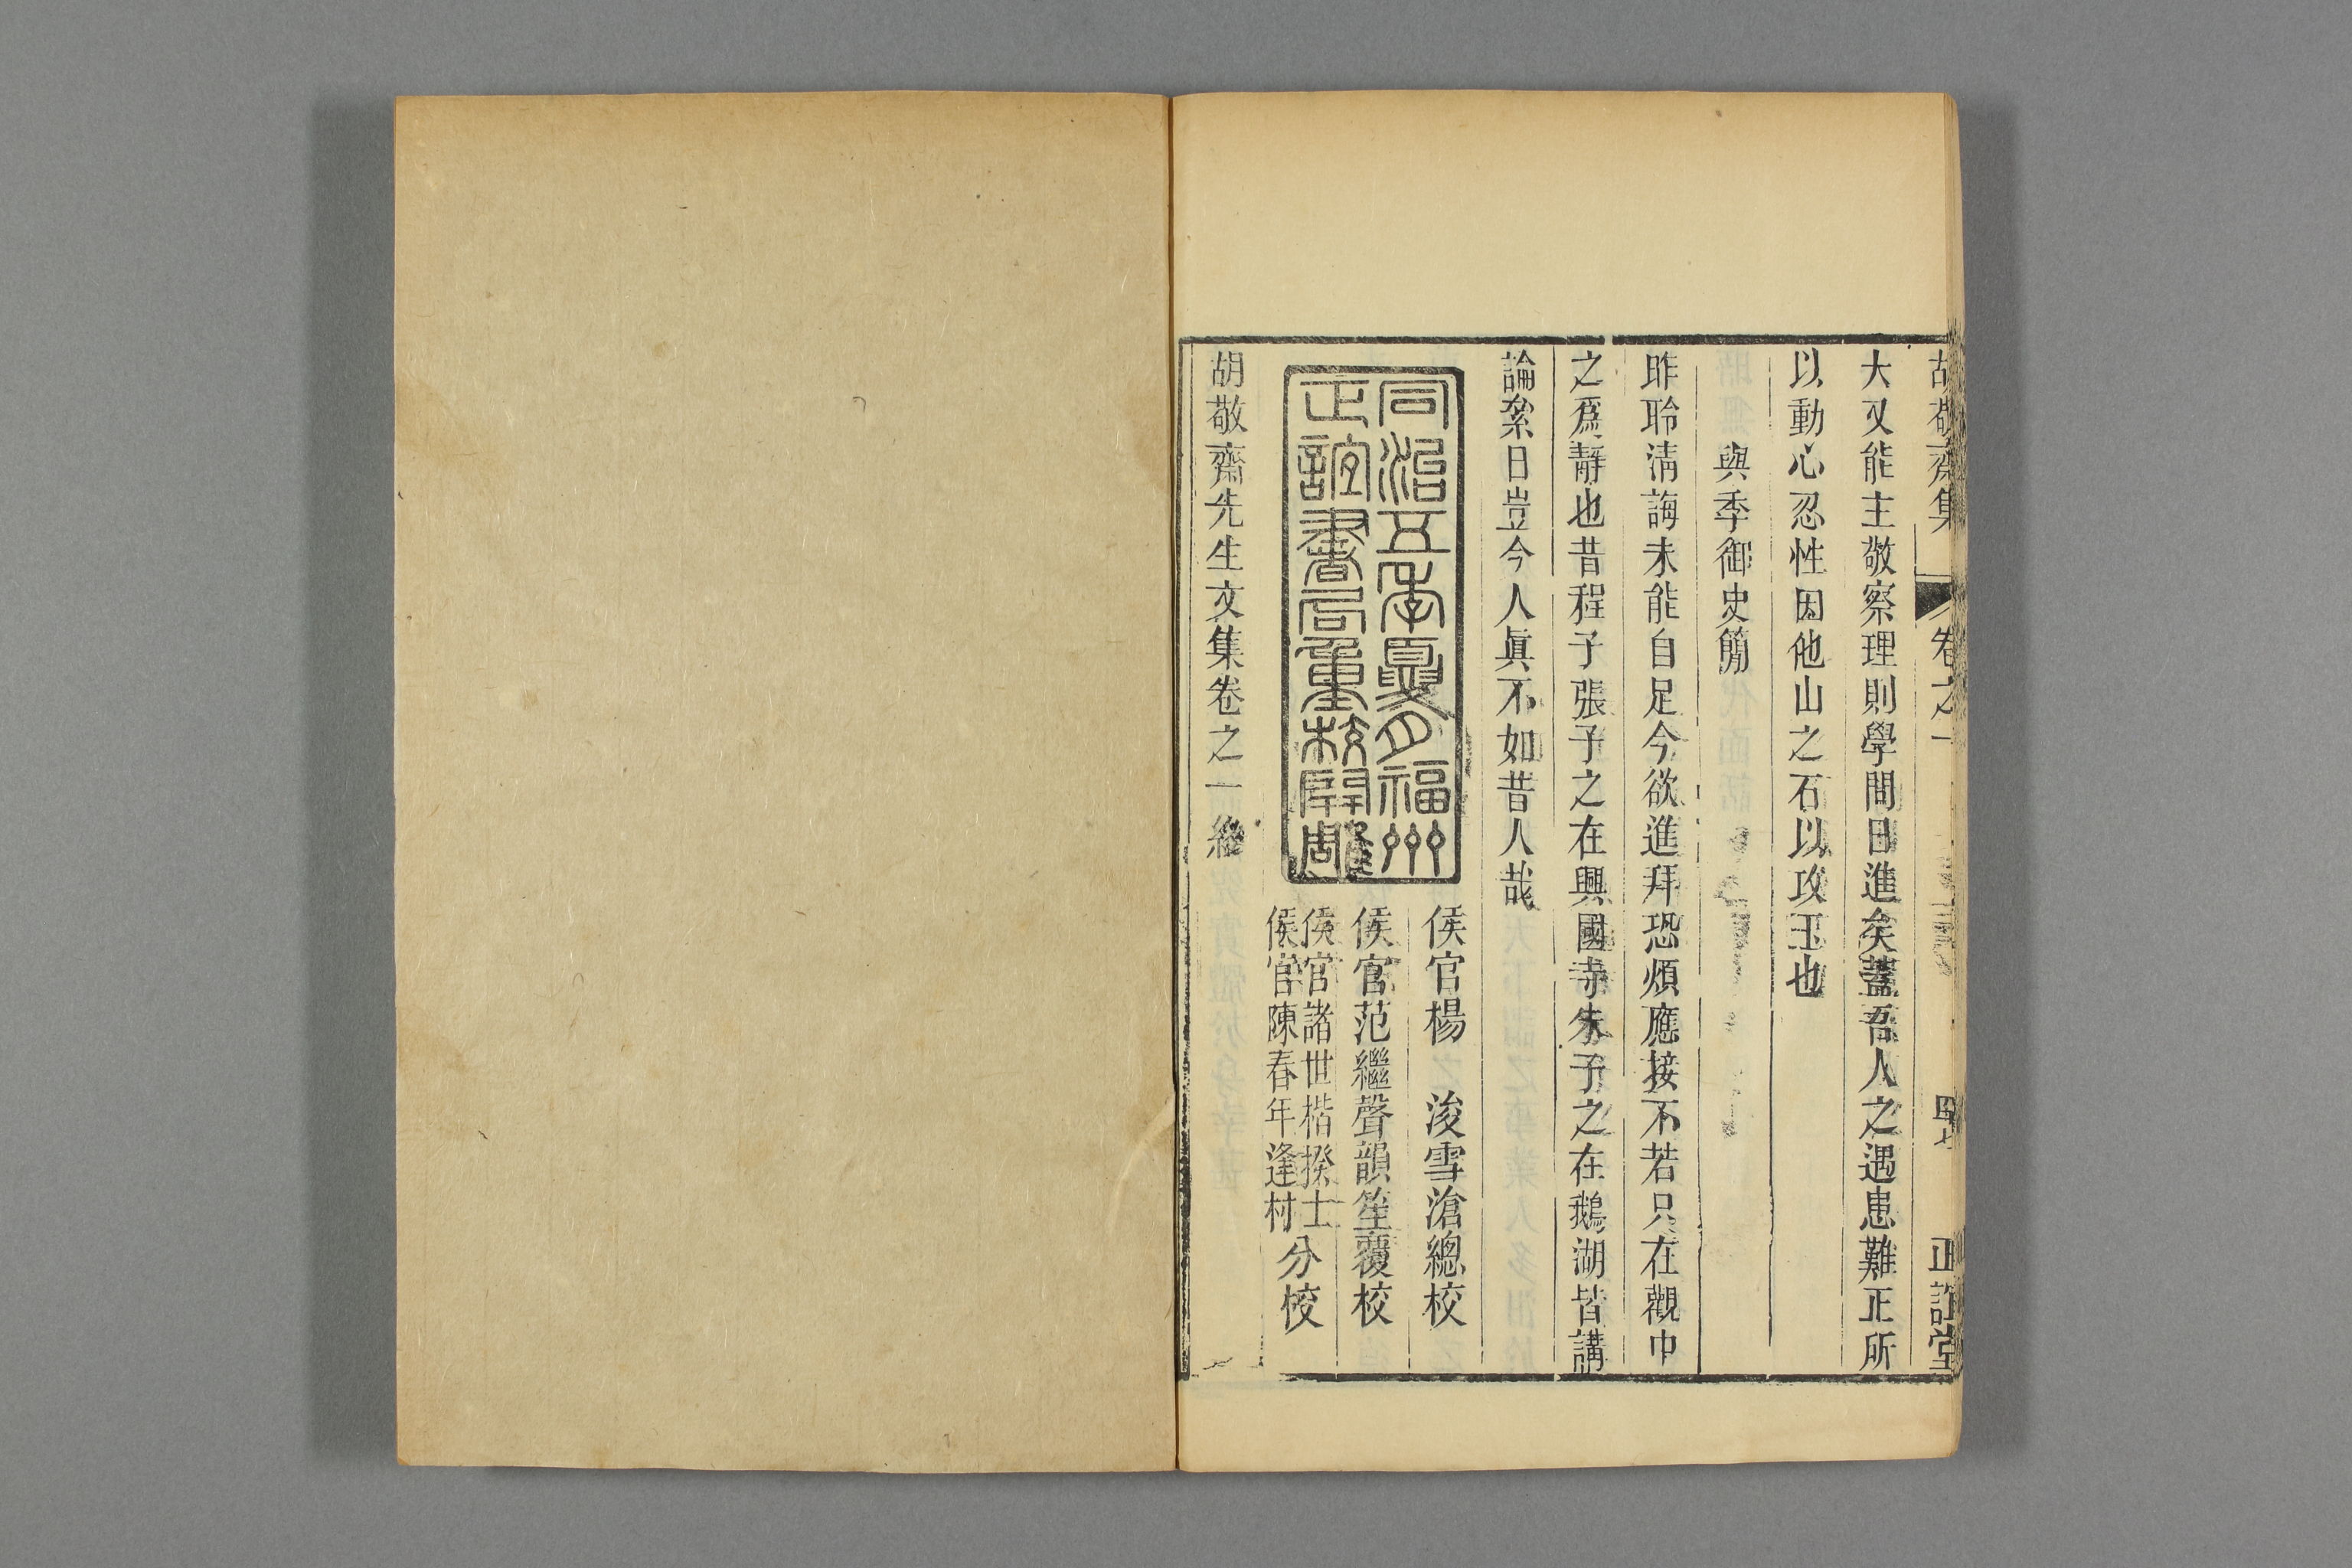 胡敬齋集 卷之一 四七 正誼堂
大又能主敬察理則學問日進矣蓋吾人之遇患難正所
以動心忍性因他山之石以攻玉也
與季御史簡
昨聆淸誨未能自足今欲進拜恐煩應接不若只在觀中
之爲靜也昔程子張子之在興國寺朱子之在鵝湖皆講
論絫日豈今人眞不如昔人哉
同治五年夏月福州
正誼書局重校開雕
侯官楊 浚雪滄總校
侯官范繼聲韻笙覆校
侯官諸世楷揆士
侯官陳春年逢村
分校
胡敬齋先生文集卷之一終